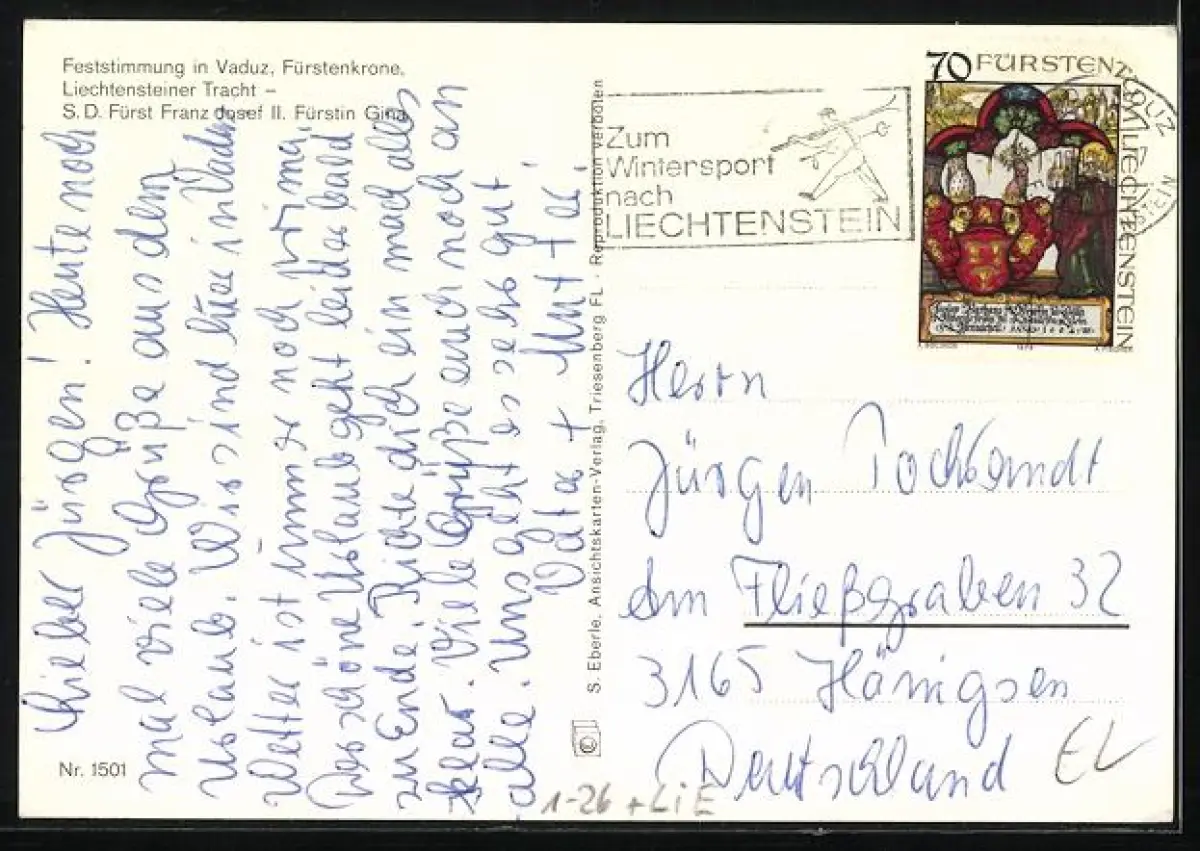 Feststimmung in Vaduz, Fürstenkrone,
Liechtensteiner Tracht –
S.D. Fürst Franz Josef II. Fürstin Gina
Lieber Jürgen! Heute noch
mal viele Grüße aus dem
Urlaub. Wir sind hier in Vaduz
Wetter ist immer noch prima.
Der schöne Urlaub geht leider bald
zu Ende. Richte dich ein mach alles
klar. Viele Grüße euch noch an
alle. Uns geht es sehr gut!
Vater + Mutter!
Nr. 1501
S. Eberle, Ansichtskarten-Verlag, Triesenberg FL · Reproduktion verboten
©
Zum
Wintersport
nach
LIECHTENSTEIN
70 FÜRSTENTUM LIECHTENSTEIN
VADUZ
Herrn
Jürgen
Am Fließgraben 32
3165 Hänigsen
Deutschland
EL
1-26 + LiE